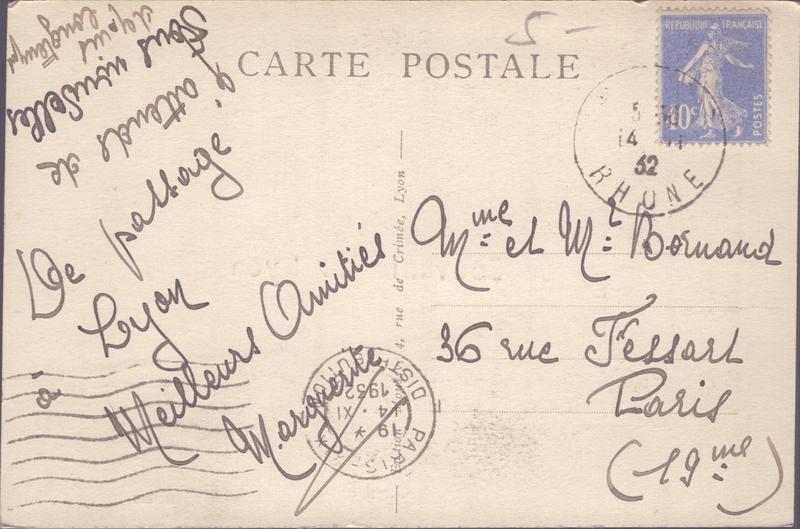 5-
CARTE POSTALE
REPUBLIQUE FRANÇAISE
40c
POSTES
5
14
32
RHONE
De passage
à Lyon
Meilleurs Amitiés
Marguerite
J'attends de
vos nouvelles
depuis
longtemps
4, rue de Crimée, Lyon
PARIS
DISTRIBUTION
19
4 · XI
1932
Mme et Mr Bornand
36 rue Fessart
Paris
(19me)